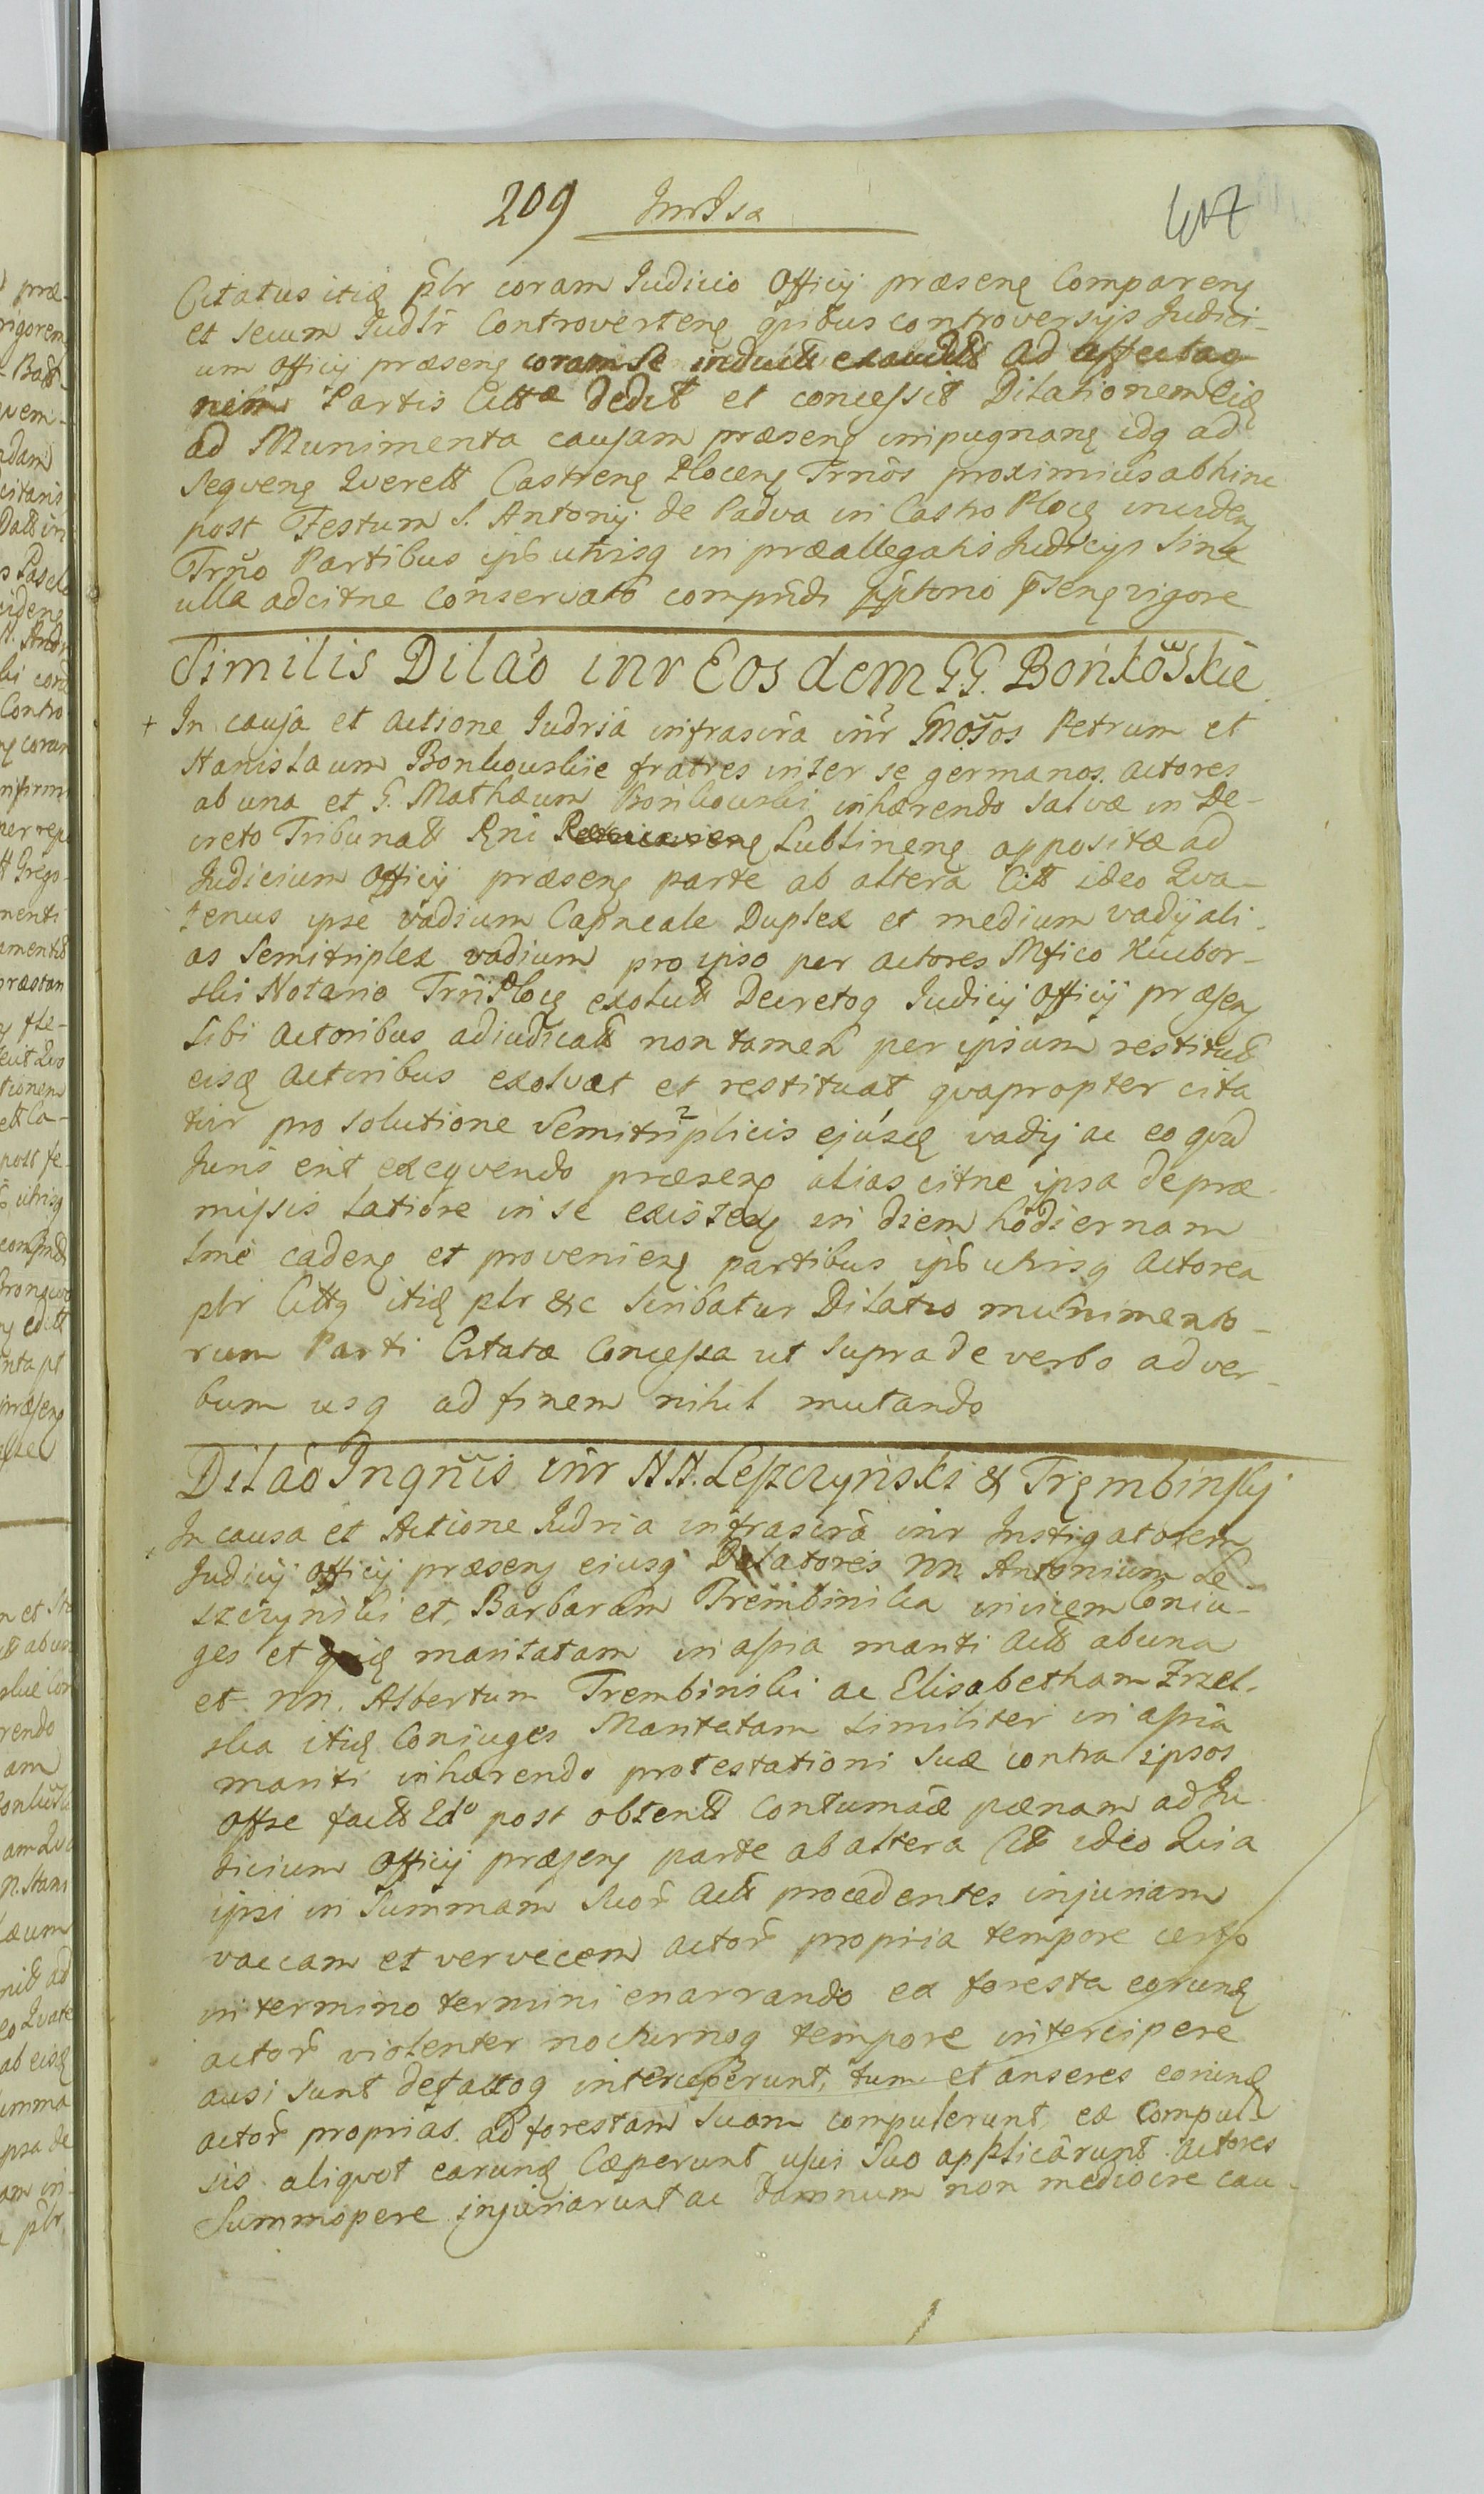 209
407
Citatus itid plr coram Iudicio Officij præsenę Comparenę
et secum Iudlr Controvertenę quibus controversijs Iudici-
um Officij præsenę coram se induct exaudit ad affectao-
nem Partis Cittæ dedit et concessit Dilationem eid
ad Munimenta causam præsenę impugnanę idq ad
seqvenę Qverell Castrenę Plocenę Trnos proximius abhinc
post Festum S. Antonij de Padva in Castro Ploc inciden
Trno Partibus ipis utrisq in præallegatis Iudicijs sine
ulla adcitne conservato comprndi pptorio psenę vigore
Similis Dilao inr Eosdem GG. Bońkowskie
+ In causa et actione Iudria infrascra inr Gnosos Petrum et
Stanislaum Bonkowskie fratres inter se germanos actores
ab una et G. Mathæum Bońkowski inhærendo salvæ in De-
creto Tribunalt Rgni Lublinenę appositæ ad
Iudicium Officij præsenę parte ab altera Citt ideo Qva-
tenus ipse vadium Capneale Duplex et medium vadij ali-
as Semitriplex vadium pro ipso per actores Mfico Kucbor-
ski Notario Trrii Ploc exolut Decretoq Iudicij Officij præsen
sibi Actoribus adiudicatt non tamen per ipsum restitut
eisd Actoribus exolvat et restituat qvapropter cita
tur pro solutione Semitriplicis ejusd vadij ac eo qvod
Juris erit exeqvendo præsenę alias citne ipsa de præ-
missis latiore in se existen in diem hodiernam
lme cadenę et provenienę partibus ipis utrisq Actorea
plr Cittq itid plr &c scribatur Dilatio munimento-
rum Parti Citatæ Concessa ut supra de verbo ad ver-
bum usq ad finem nihil mutando
Dilao Ingnis inr NN. Leszczyński & Trembinskij
In causa et Actione Iudria infrascra inr Instigatorem
Iudicij Officij præsenę eiusq Delatores NN. Antonium Le-
szczynski et Barbaram Trembinska invicem Coniu-
ges et maritatam in assia mariti Actt ab una
et NN. Albertum Trembinski ac Elisabetham Zrzel-
ska itid Coniuges Maritatam similiter in assia
mariti inhærendo protestationi suæ contra ipsos
Offse factt 2do post obtent Contumaciæ pænam ad Iu
dicium Officij præsenę parte ab altera Citt ideo Qvia
ipsi in Summam suor Actt procedentes injuriam
vaccam et vervecem actor propria tempore certo
in termino termini enarrando ex foresta eorund
actor violenter nocturnoq tempore intercipere
ausi sunt defactoq interceperunt, tum et anseres eorund
actor proprias ad forestam suam compulerunt, ex Compul-
sis aliqvot earund Cæperunt usui suo applicarunt Actores
Summopere injuriarunt ac damnum non mediocre cau-